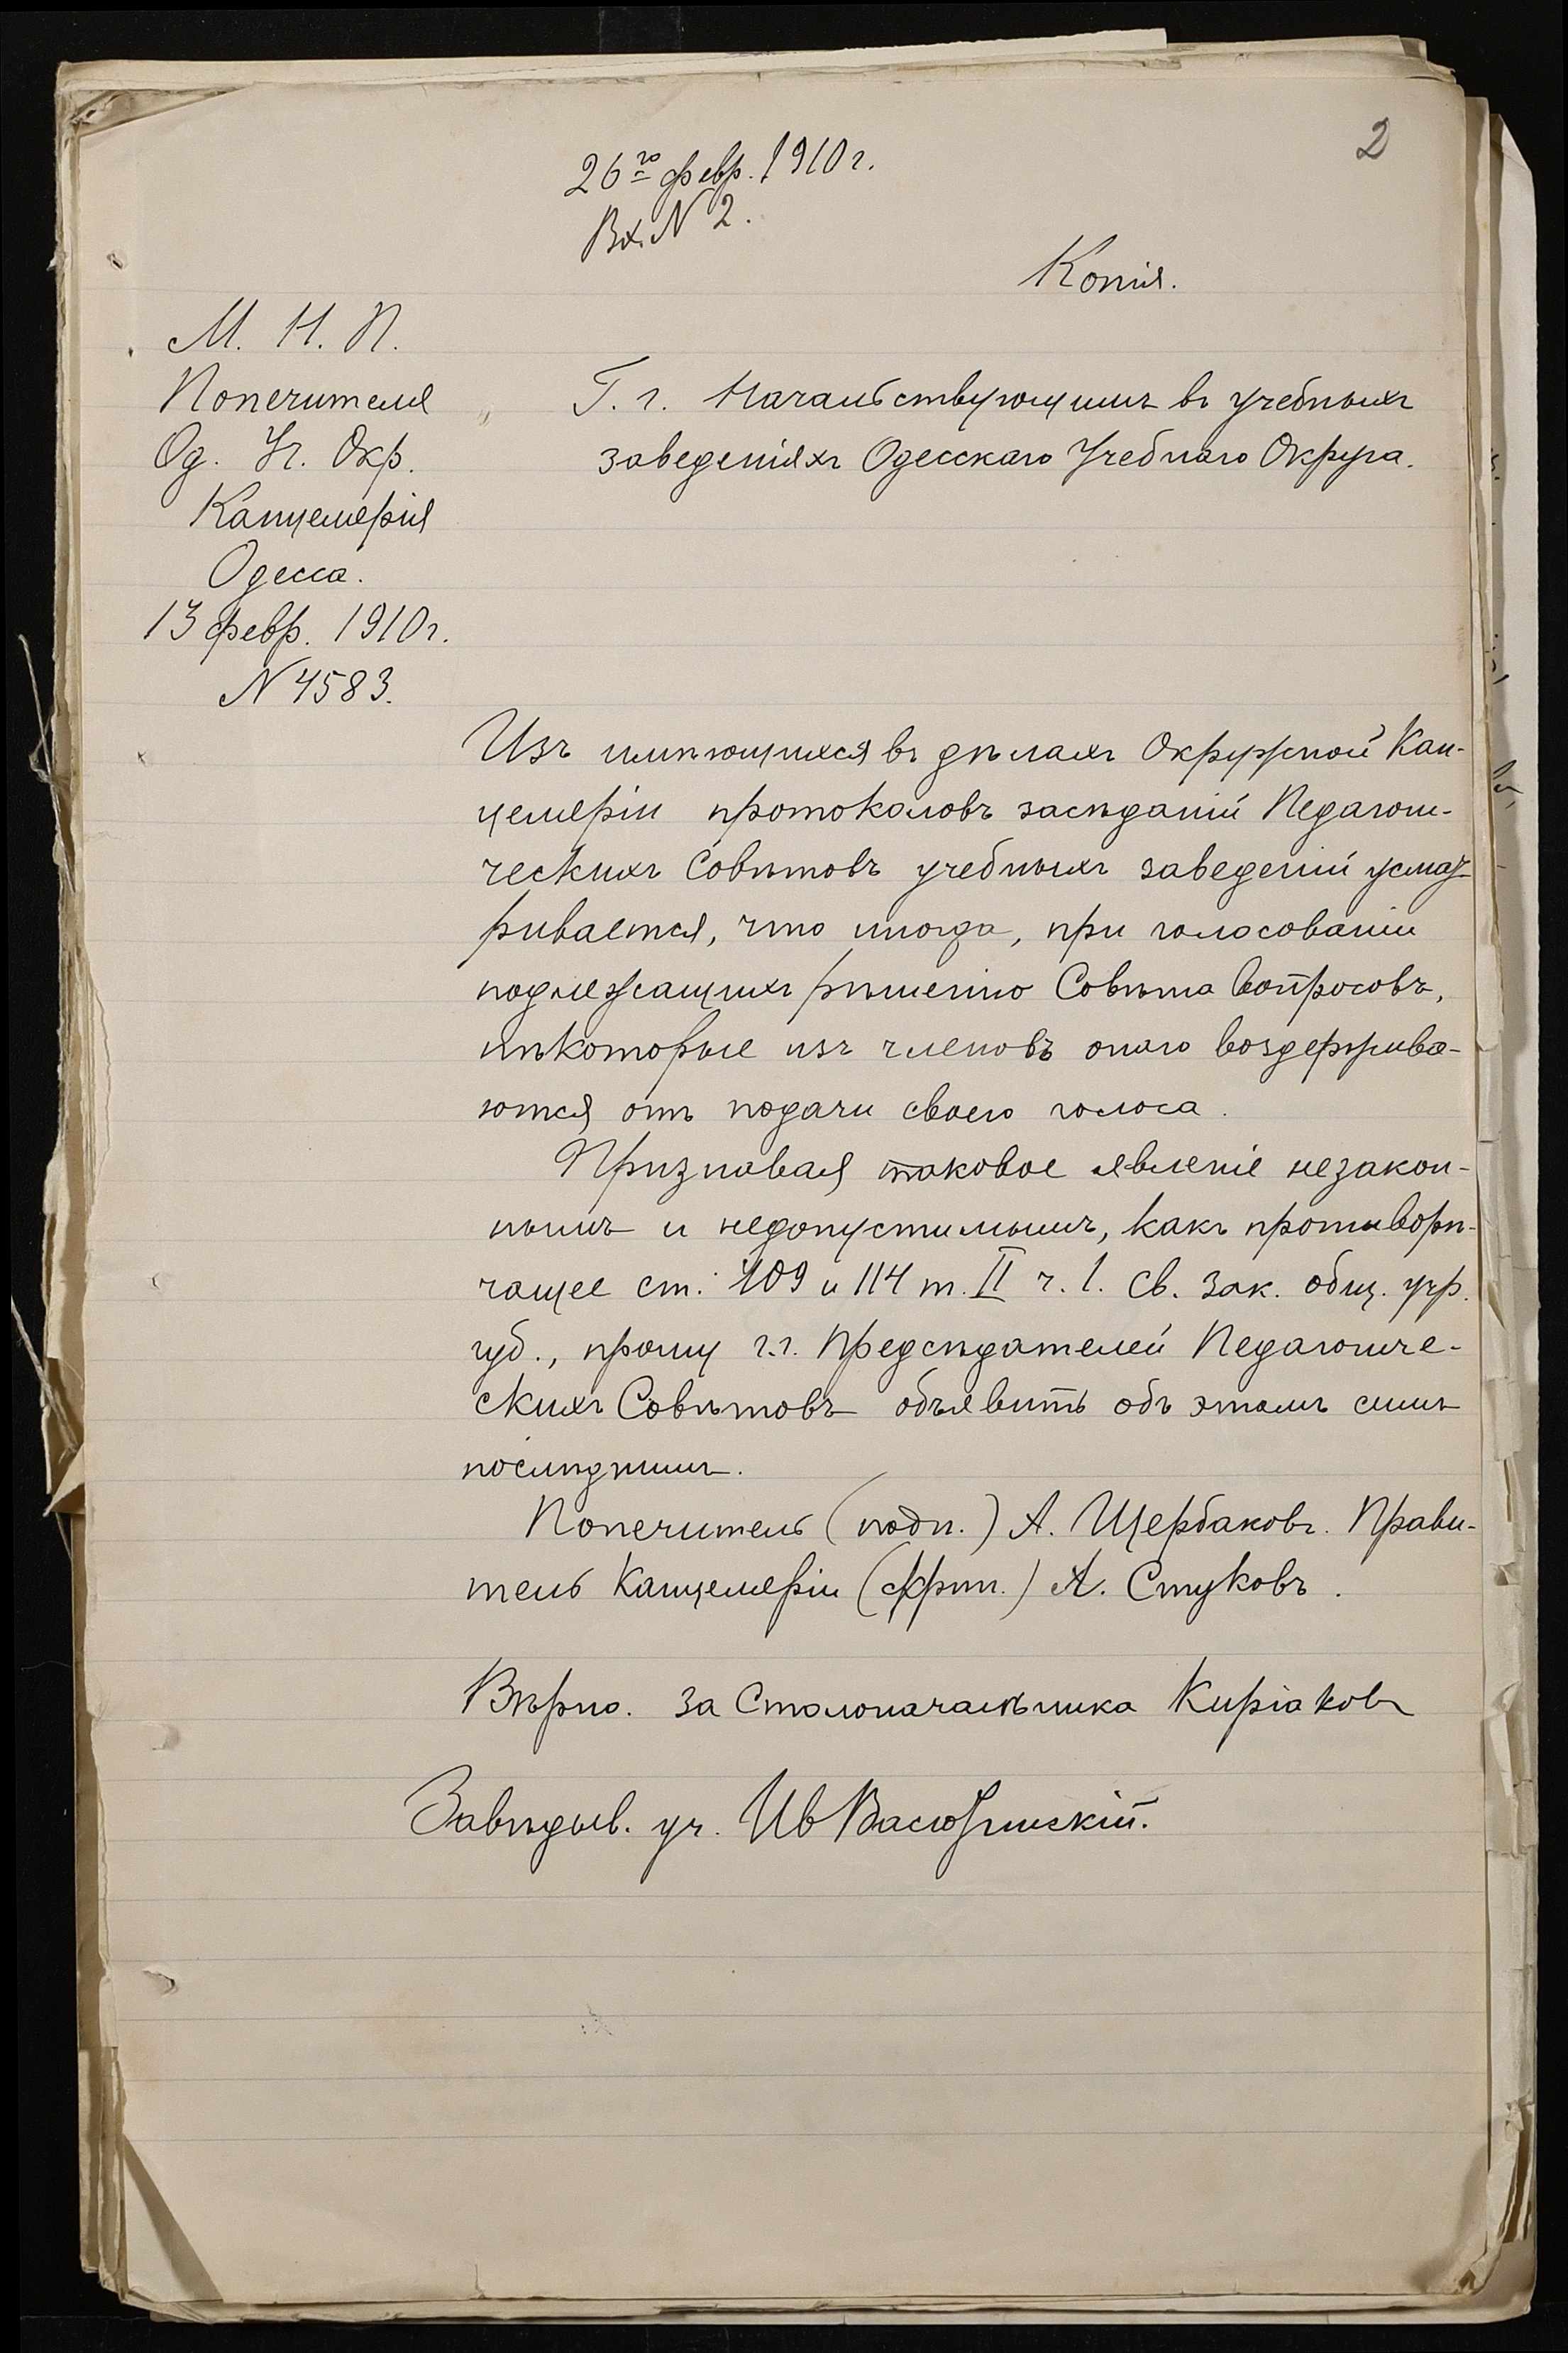 2
26го февр. 1910 г.
Вх. N 2.
Копія.
М. Н. П.
Попечителя
Од. Уч. Окр.
Канцелярія
Одесса.
13 февр. 1910 г.
N 4583.
Г. г. Начальствующимъ въ учебныхъ
заведеніяхъ Одесскаго Учебнаго Округа.
Изъ имѣющихся въ дѣлахъ Окружной Кан-
целеріи протоколовъ засѣданій Педагоги-
ческихъ Совѣтовъ учебныхъ заведеній усмат-
ривается, что иногда, при голосованіи
подлежащихъ рѣшенію Совѣта вопросовъ,
нѣкоторые изъ членовъ онаго воздержива-
ются отъ подачи своего голоса.
Признавая таковое явленіе незакон-
нымъ и недопустимымъ, какъ противорѣ-
чащее ст. 109 и 114 т. II ч. 1. Св. Зак. общ. учр.
губ., прошу г.г. Предсѣдателей Педагогиче-
скихъ Совѣтовъ объявить объ этомъ симъ
послѣднимъ.
Попечитель (подп.) А. Щербаковъ. Прави-
тель Канцелеріи (скрѣп.) А. Стуковъ.
Вѣрно. За Столоначальника Киріаковъ
Завѣдыв. уч. Ив